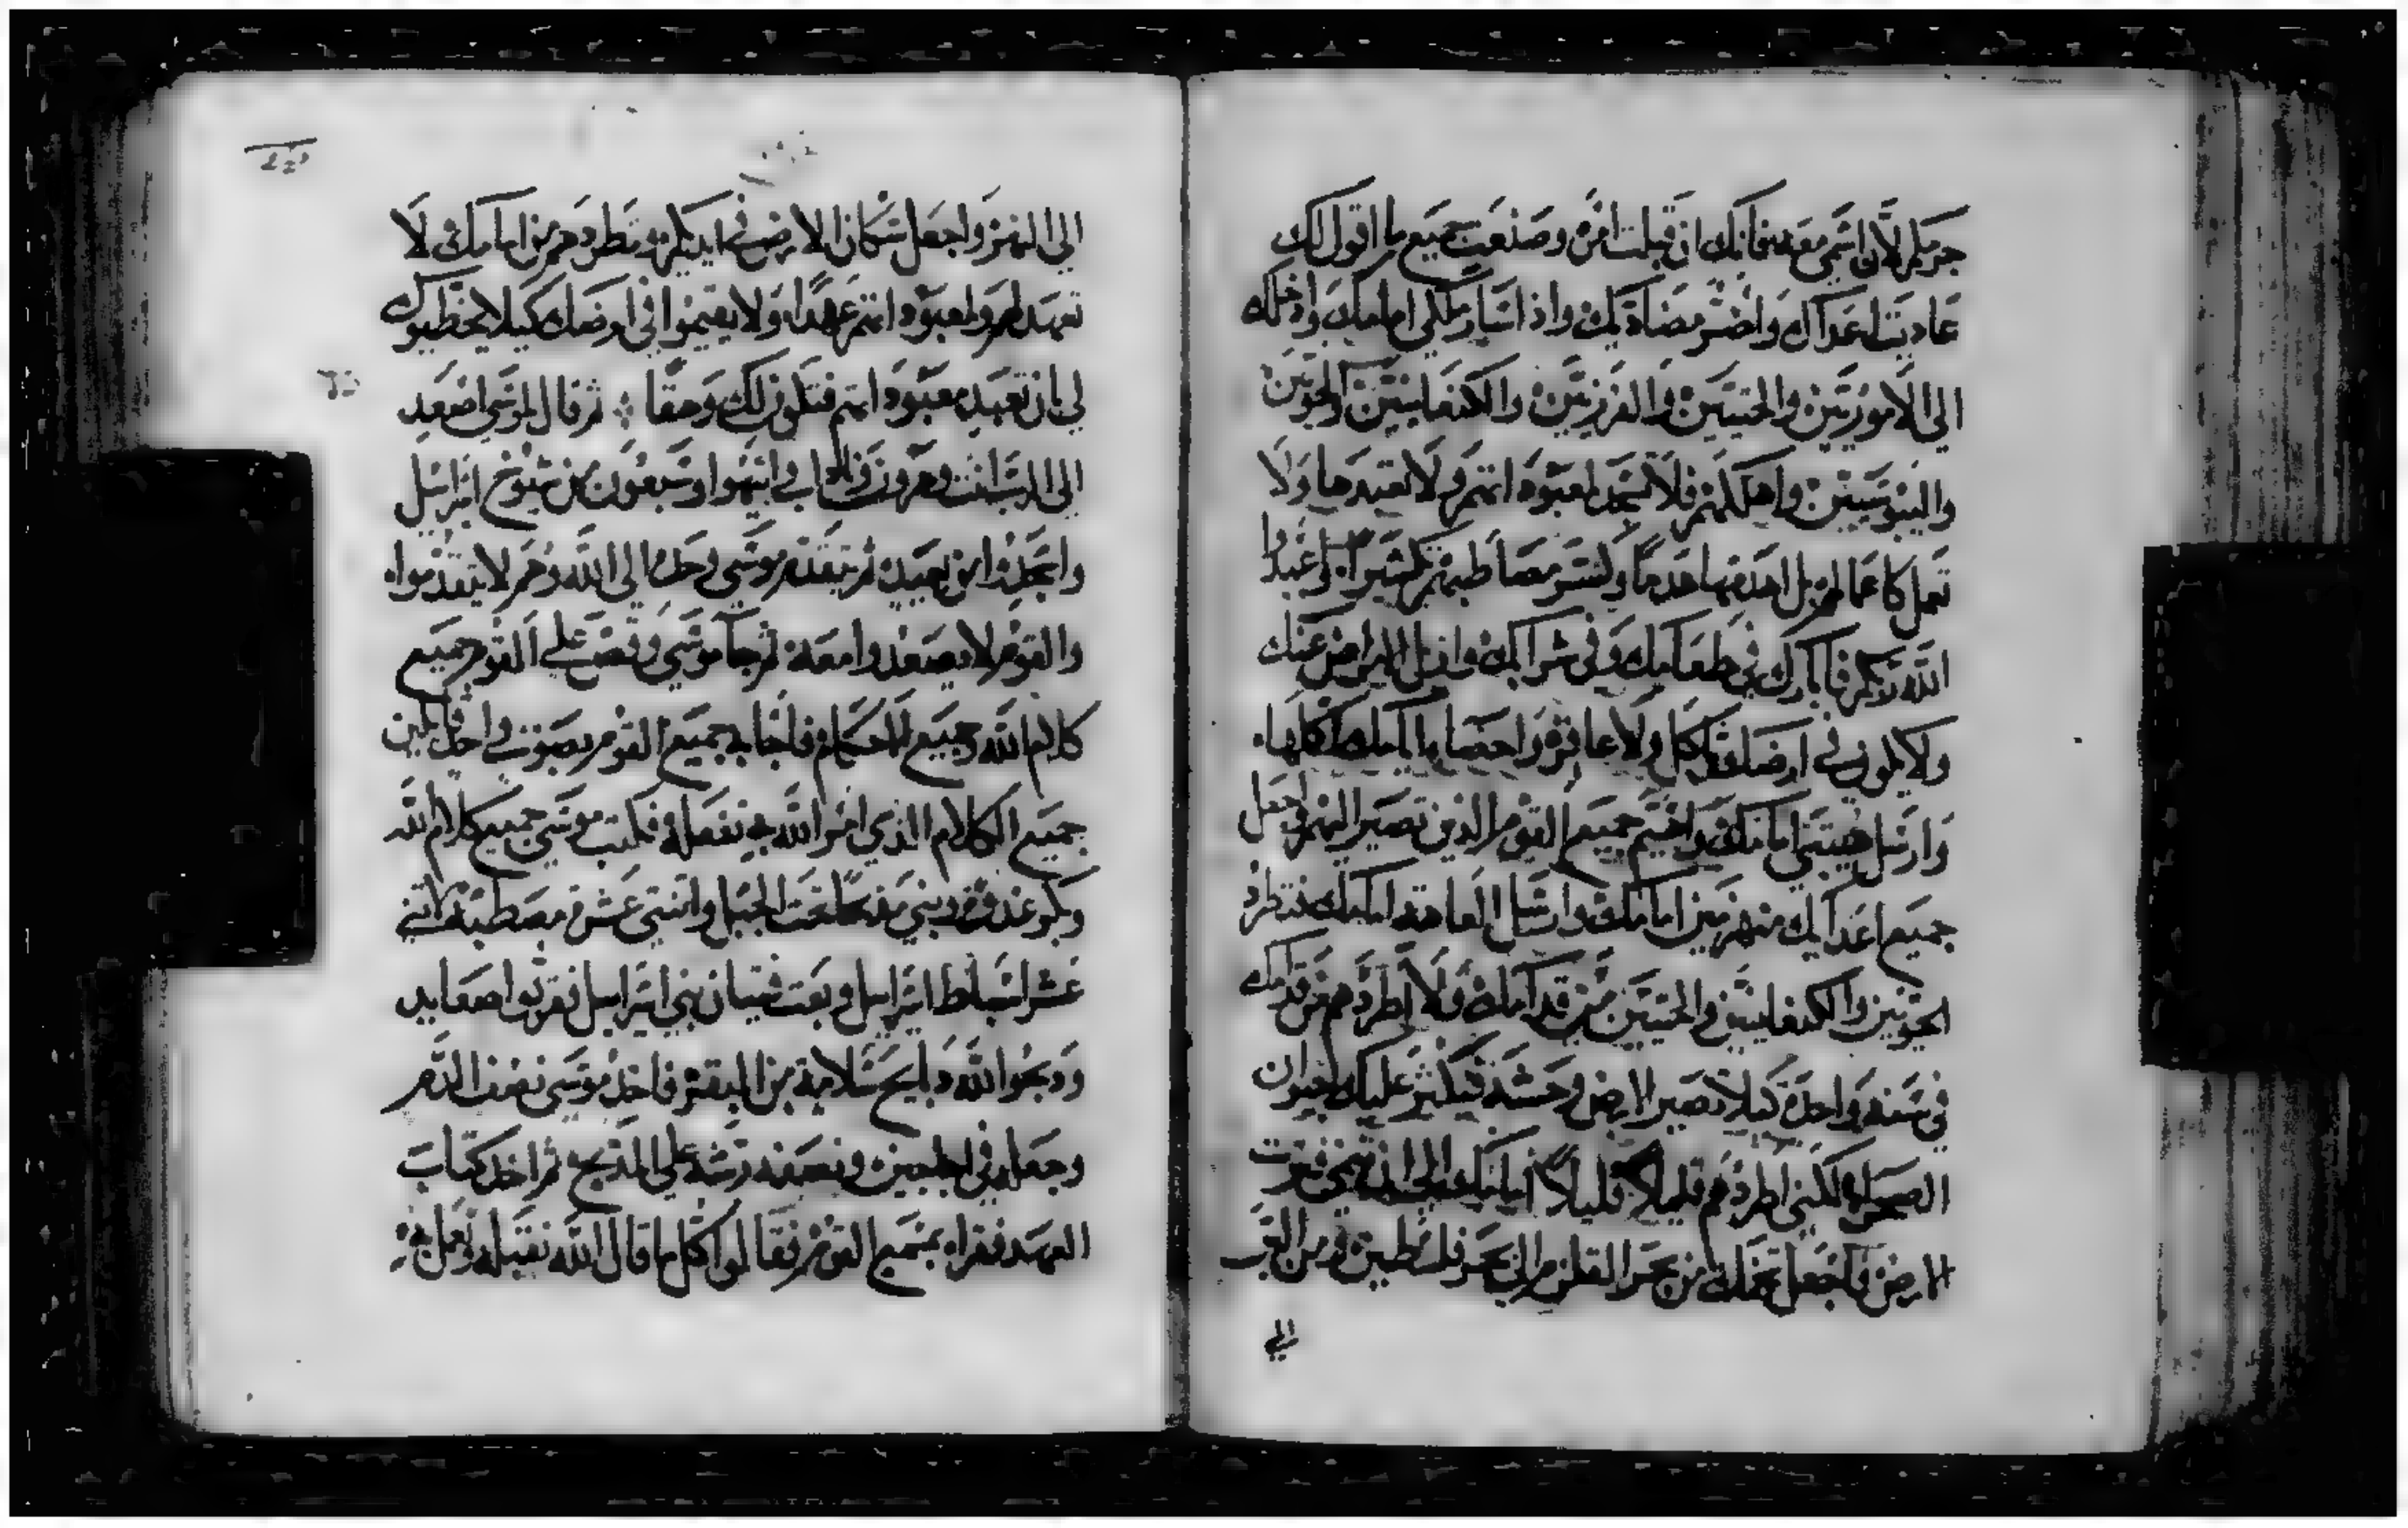 جرمكم لان اسمي معه فانك ان قبلت امره وصنعت جميع ما اقول لك
عاديت اعداك واضر مضاديك واذا سار ملكي امامك وادخلك
الى الاموريين والحيثيين والفرزيين والكنعانيين والحويين
واليبوسيين واهلكتهم فلا تسجد لمعبوداتهم ولا تعبدها ولا
تعمل كاعمالهم بل اهدمها هدما وكسر مصاطبهم كسيرا واعبدوا
الله ربكم فابارك في طعامك وفي شرابك وازيل الامراض عنك
ولا يكون في ارضك ثاكل ولا عاقرة واحصا ايامك اكملها
وارسل هيبتي امامك واهيم جميع القوم الذين تصير اليهم واجعل
جميع اعدايك منهزمين امامك وارسل العاهة امامك فتطرد
الحويين والكنعانيين والحيثيين من قدامك ولا اطردهم من قدامك
في سنة واحدة كيلا تصير الارض وحشة فيكثر عليك حيوان
الصحرا لكني اطردهم قليلا قليلا من امامك الى ان تنمي فتحوز
الارض واجعل تخمك من بحر القلزم الى بحر فلسطين ومن البر
الى
الى النهر واجعل سكان الارض في ايديكم وتطردهم من امامك لا
تعهد لهم ولمعبوداتهم عهدا ولا يقيموا في ارضك كيلا يخطيوك
لي بان تعبد معبوداتهم فتكون لك وهقا ثم قال لموسى اصعد
الى الرب انت وهرون وناداب وابيهوا وسبعون من شيوخ اسراييل
واسجدوا من بعيد ثم يتقدم موسى وحده الى الله وهم لا يتقدموا
والقوم لا يصعدوا معه ثم جا موسى وقص على القوم جميع
كلام الله وجميع الاحكام فاجابه جميع القوم بصوت واحد قايلين
جميع الكلام الذي امر الله به نفعله فكتب موسى جميع كلام الله
وبكر غدوة وبنى مذبحا تحت الجبل واثنتي عشرة مصطبة لاثني
عشر اسباط اسراييل وبعث فتيان بني اسراييل فقربوا صعايد
وذبحوا لله ذبايح سلامة من البقر فاخذ موسى نصف الدم
وجعله في اجاجين ونصفه رشه على المذبح ثم اخذ كتاب
العهد فقراه بمسمع القوم فقالوا كل ما قال الله نقبله ونعمل به